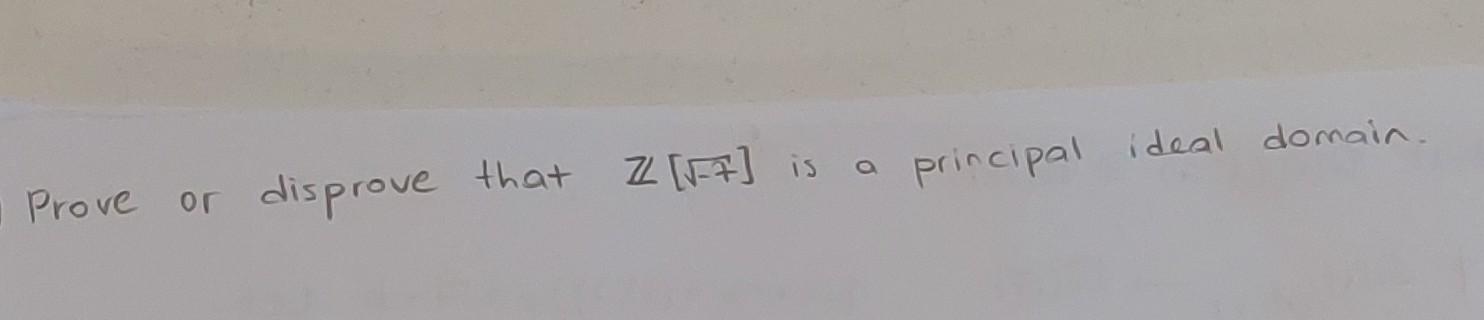 Prove or disprove that ℤ[√-7] is a principal ideal domain.